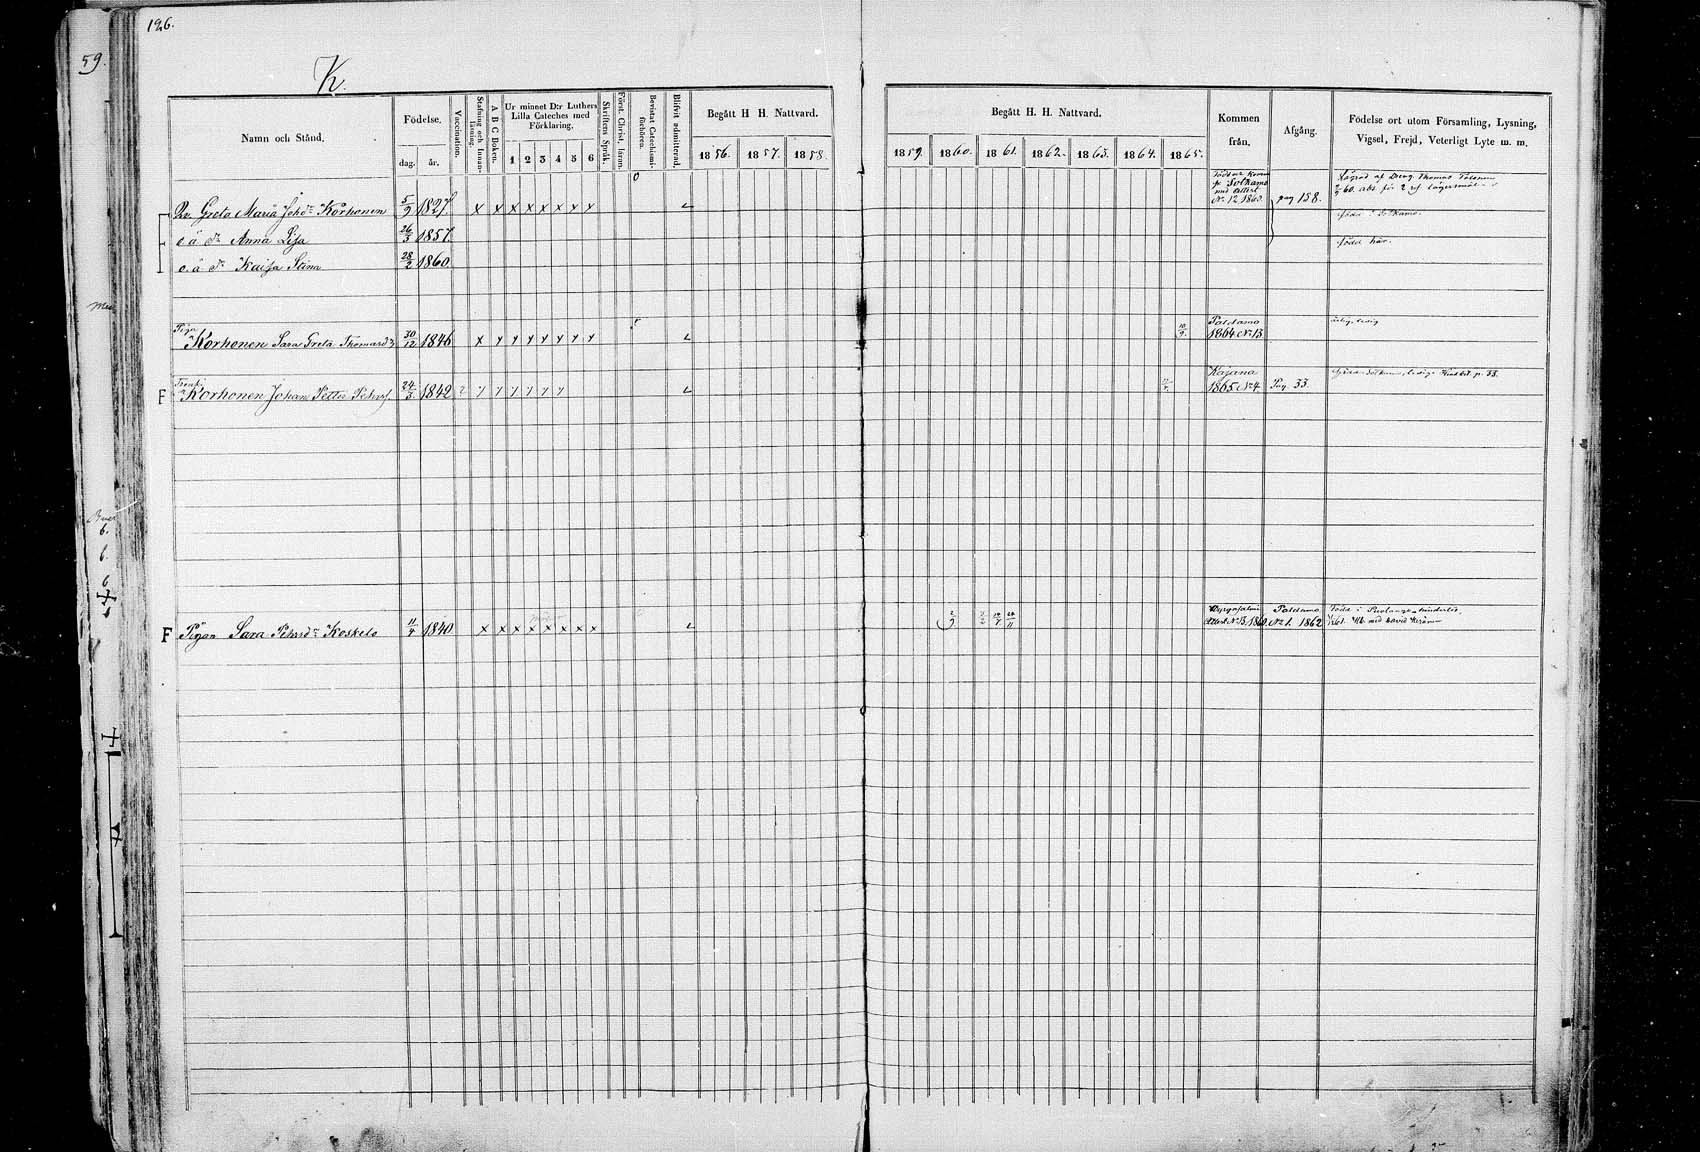 126.
59.
K.
Namn och Stånd.
Födelse.
dag.
år.
Vaccination.
Stafning och Innanläsning.
A B C Boken.
Ur minnet D:r Luthers Lilla Cateches med Förklaring.
1 2 3 4 5 6
Skriftens Språk.
Först. Christ. läran.
Bevistat Catechismi-förhören.
Blifvit admitterad.
Begått H H. Nattvard.
1856. 1857. 1858.
Begått H. H. Nattvard.
1859. 1860. 1861. 1862. 1863. 1864. 1865.
Kommen från.
Afgång.
Födelse ort utom Församling, Lysning, Vigsel, Frejd, Veterligt Lyte m. m.
Greta Maria Johd:r Korhonen 5/9 1827. x x x x x x x x
Sotkamo
med attest
No 12 1860.
pag 158.
o. ä. d:r Anna Lisa 26/3 1857.
född i Sotkamo.
o. ä. d:r Kaisa Stina 28/2 1860.
född här.
Piga
Korhonen Sara Greta Thomasd:r 30/12 1846 x x x x x x x x
10/9.
Paldamo
1864 No 13
ärlig, ledig
F
Korhonen Johan Petter Pehrs. 24/3 1842
Kajana
1865 No 4.
Pag. 33.
F
Pigan Sara Pehrsd:r Koskelo 11/4 1840 x x x x x x x x
Attest No 13. 1860.
Paldamo
No 1. 1862
född i
med David